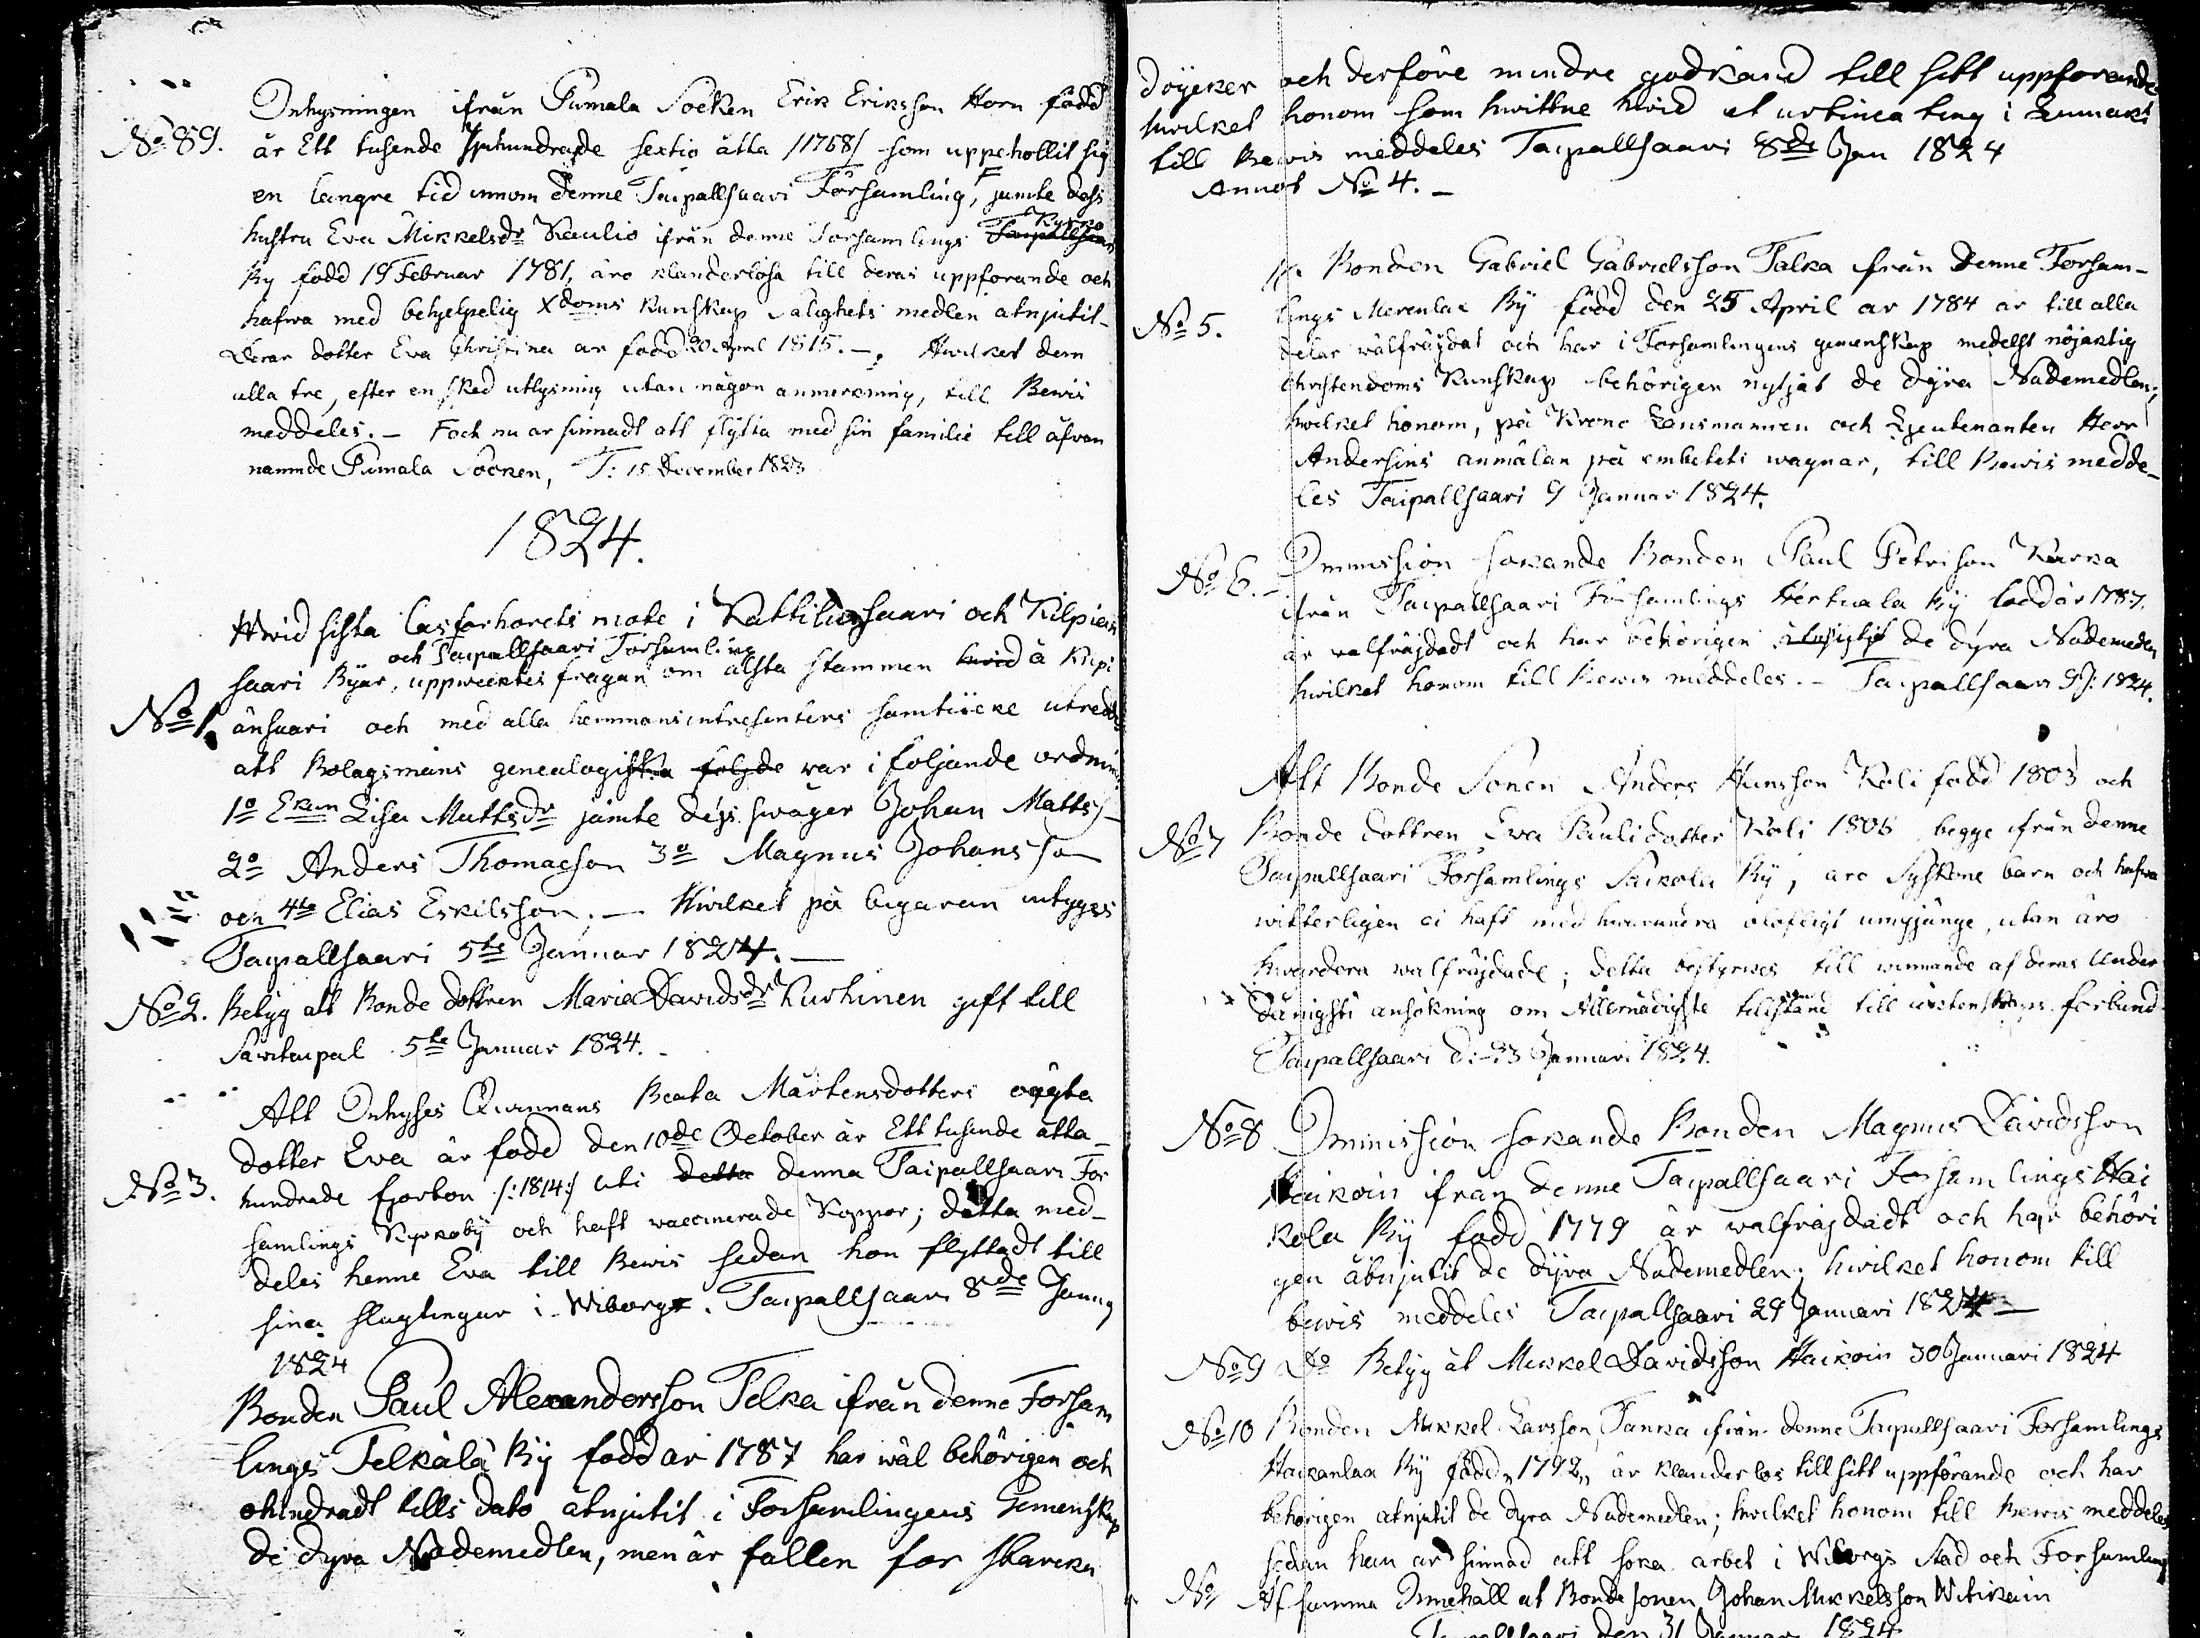 Inhysningen ifrån Pumala Socken Erik Eriksson Horn född
No 89. år Ett tusende Sjuhundrade sextio åtta /1768/ som uppehollit sig
en längre tid innom denne Taipallsaari Församling, F jämte dess
hustru Eva Mikkelsdr Kaulio ifrån denne Församlings Kyrko
By född 19 Februar 1781, äro klanderlösa till deras uppförande och
hafwa med behjelpelig Xdoms Kunskap Salighets medlen åtnjutit.
Deras dotter Eva Christina är född 20 April 1815. – Hwilket dem
alla tre, efter en sked utlysning utan någon anmerkning, till Bewis
meddeles. – F och nu är sinnadt att flytta med sin familie till åfvan
namnde Pumala Socken, T: 15 December 1823
1824.
Hwid sista läsförhörets möte i Kattilansaari och Kilpiän
och Taipallsaari Församling
saari Byar, uppwecktes frågan om älsta stammen hwid å Kilpi
No 1. änsaari och med alla hemmansintressenters samtücke utreddes
att Bolagsmäns genealogiska följde war i följande ordning
1o Enkan Lisa Mattsdr jämte dess swåger Johan Matts–
2o Anders Thomasson 3o Magnus Johansson
och 4to Elias Eskilsson. – Hwilket på begäran intygas
Taipallsaari 5te Januar 1824. –
No 2. Betyg att Bonde dottren Maria Davidsdr Kurhinen gift till
Savitaipal 5te Januar 1824. –
Att Inhyses Qwinnans Beata Mårtensdotters oägta
dotter Eva är född den 10de October år Ett tusende åtta–
No 3. hundrade fjorton /:1814:/ uti detta denna Taipallsaari För
samlings Kyrkoby och haft waccinerade Koppor; detta med–
deles henne Eva till Bewis sedan hon flyttadt till
sina slägtingar i Wiborg. Taipallsaari 8de Januar
1824
Bonden Paul Alexandersson Telka ifrån denne Försam
lings Telkälä By född år 1787 har wäl behörigen och
ohindradt tills dato åtnjutit i Församlingens Gemenskap
de dyra Nådemedlen, men är fallen för starcka
dryker och derföre mindre godkänd till sitt uppförande
hwilket honom som hwittne hwid et urtima ting i Lumaki
till Bewis meddeles Taipallsaari 8de Jan 1824
Annot No 4. –
Bonden Gabriel Gabrielsson Talka från Denne Försam–
No 5. lings Merenlax By född den 25 April år 1784 är till alla
delar wälfräjdat och har i Församlingens gemenskap medelst nöjaktig
christendoms Kunskap behörigen nytjat de dyra Nådemedlen;
hwilket honom, på Krono Länsmannen och Lieutenanten Herr
Andersins anmälan på embetets wägnar, till Bewis medde–
les Taipallsaari 9 Januar 1824.
No 6. – Dimmission sökande Bonden Paul Petrisson Karka
ifrån Taipallsaari Församlings Hertuala By född år 1787.
är wälfräjdadt och har behörigen de dyra Nådemedlen
hwilket honom till Bewis meddeles. – Taipallsaari 9 J: 1824.
Att Bonde Sonen Anders Hansson Kali född 1803 och
No 7 Bonde dottren Eva Paulidotter Kali 1806 begge från denne
Taipallsaari Församlings Saikola By, äro Syskone barn och hafwa
witterligen ei haft med hwarandra olofligt umgänge, utan äro
hwardera wälfräjdade; detta bestyrkes till winnande af deras Under
dånigsti ansökning om Allernådigste tillstånd till äktenskaps förbund.
Taipallsaari d: 23 Januari 1824.
No 8 Dimmission sökande Bonden Magnus Davidsson
Haikoin ifrån denne Taipallsaari Församlings Hai
kola By född 1779 är wälfräjdadt och har behöri
gen åtnjutit de dyra Nådemedlen; hwilket honom till
bewis meddeles Taipallsaari 29 Januari 1824 –
No 9 Do Betyg åt Mikkel Davidsson Haikoin 30 Januari 1824
No 10 Bonden Mikkel Larsson Tanka ifrån denne Taipallsaari Församlings
Haikanlax By född „1792„ är klanderlös till sitt uppförande och har
behörigen åtnjutit de dyra Nådemedlen; hwilket honom till Bewis meddeles
sedan han är sinnad att söka arbet i Wiborgs Stad och Församling
No Af samma Innehåll åt Bonde sonen Johan Mikkelsson Witikain
Taipallsaari den 31 Januar 1824